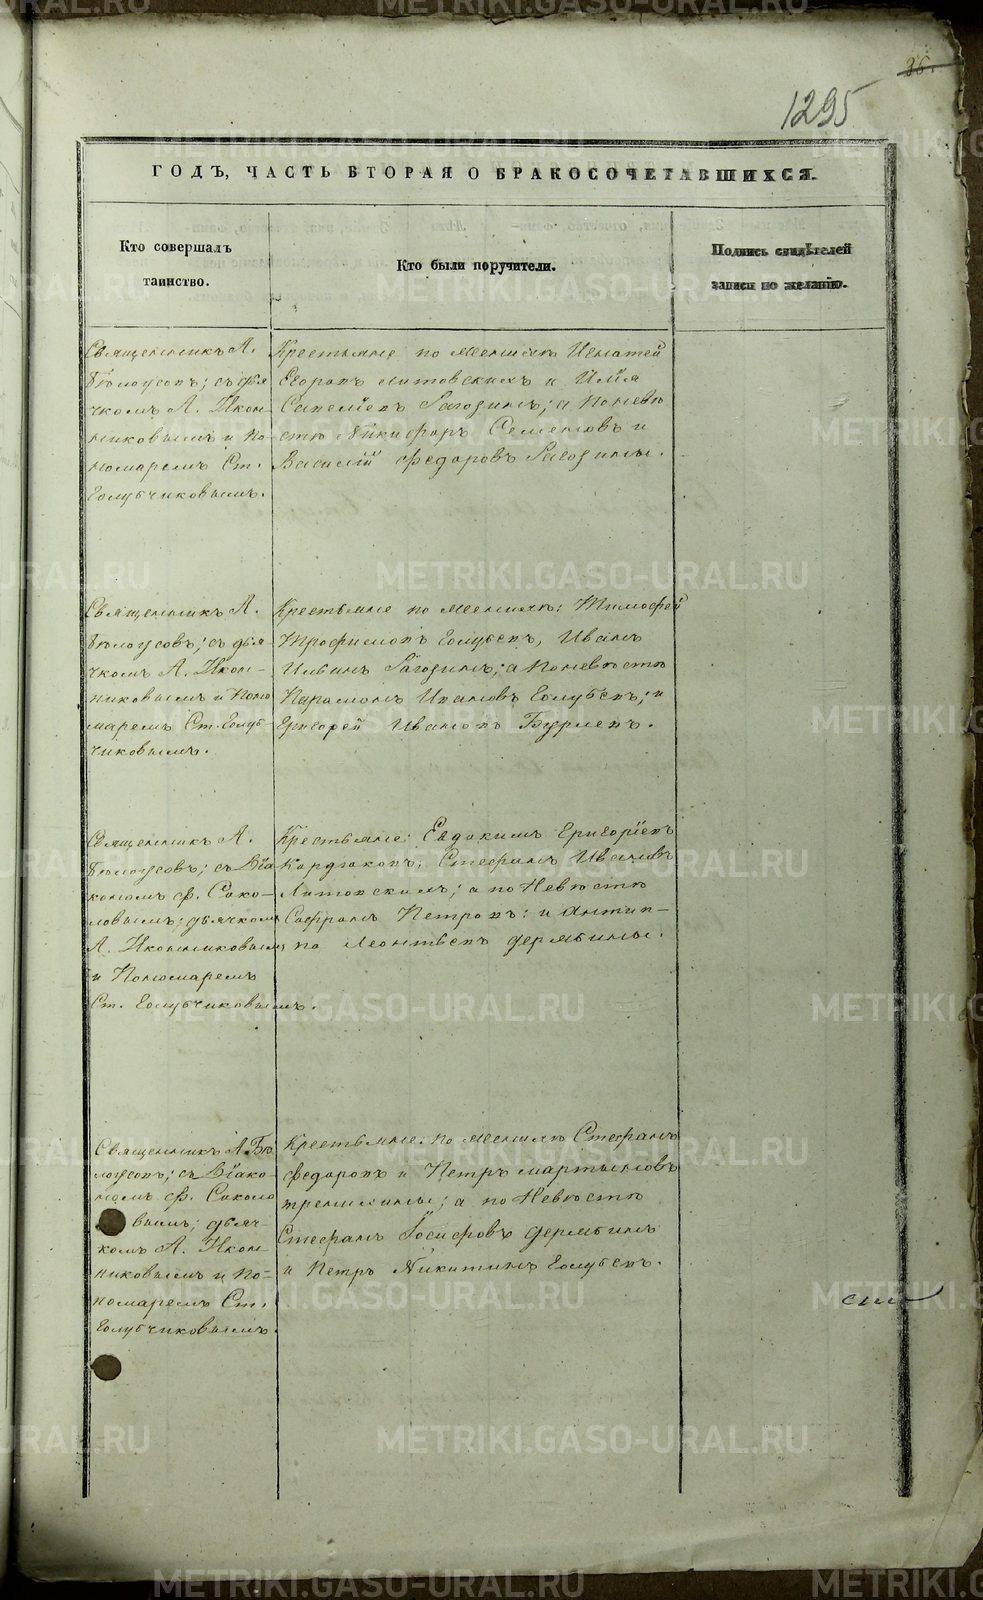 26.
1295
ГОДЪ, ЧАСТЬ ВТОРАЯ О БРАКОСОЧЕТАВШИХСЯ.
Кто совершалъ
таинство.
Кто были поручители.
Подпись свидѣтелей
записи по желанію.
Священникъ А.
Бѣлоусовъ; съ дья
чкомъ А. Икон-
никовымъ и по-
номаремъ Ст.
Голубчиковымъ.
Крестьяне по женихѣ Игнатей
Егоровъ Литовскихъ и Илія
Савеліевъ Рагозинъ; а по невѣ
стѣ Никифоръ Семеновъ и
Василій Федоровъ Рагозины.
Священникъ А.
Бѣлоусовъ; съ дья-
чкомъ А. Икон-
никовымъ и Поно
маремъ Ст. Голуб-
чиковымъ.
Крестьяне по женихѣ: Тимофей
Трофимовъ Голубевъ, Иванъ
Ильинъ Рагозинъ; а по невѣстѣ
Парамонъ Ивановъ Голубевъ; и
Григорей Ивановъ Бурлевъ.
Священникъ А.
Бѣлоусовъ; съ Діа
кономъ Ф. Соко-
ловымъ; дьячкомъ
А. Иконниковымъ
и Пономаремъ
Ст. Голубчиковымъ.
Крестьяне: Евдокимъ Григоріевъ
Стефанъ Ивановъ
Литовскимъ; а по Невѣстѣ
Сафронъ Петровъ: и Антип-
па Леонтьевъ Дерябины.
Священникъ А. Бѣ
лоусовъ; съ Діако-
номъ Ф. Соколо
вымъ; дьяч-
комъ А. Икон-
никовымъ и По-
номаремъ Ст.
Голубчиковымъ.
Крестьяне. по женихѣ Стефанъ
Федоровъ и Петръ Мартыновъ
а по Невѣстѣ
Стефанъ Іосифовъ Дерябинъ
и Петръ Никитинъ Голубевъ.
METRIKI.GASO-URAL.RU